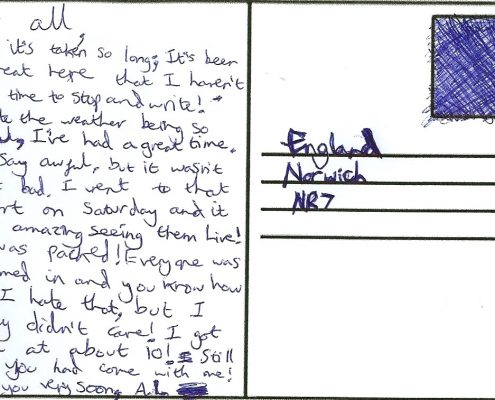 all,
it's taken so long; It's been
eat here that I haven't
time to stop and write!
te the weather being so
I've had a great time.
Say awful, but it wasn't
bad. I went to that
rt on Saturday and it
amazing seeing them live!
was packed! Everyone was
med in and you know how
I hate that, but I
y didn't care! I got
at about 10! Still
you had come with me!
you very soon, A.L.
England
Norwich
NR7